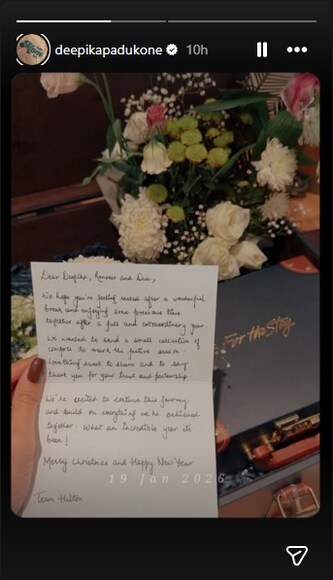 deepikapadukone 10h
For the Stay
Dear Deepika, Ranveer and Dua,
We hope you're feeling rested after a wonderful
break and enjoying some precious time
together after a full and extraordinary year.
We wanted to send a small collection of
comforts to mark the festive season -
something sweet to share and to say
thank you for your trust and partnership.
We're excited to continue this journey
and build on everything we've achieved
together. What an incredible year it's
been!
Merry Christmas and Happy New Year
19 Jan 2026
Team Hilton